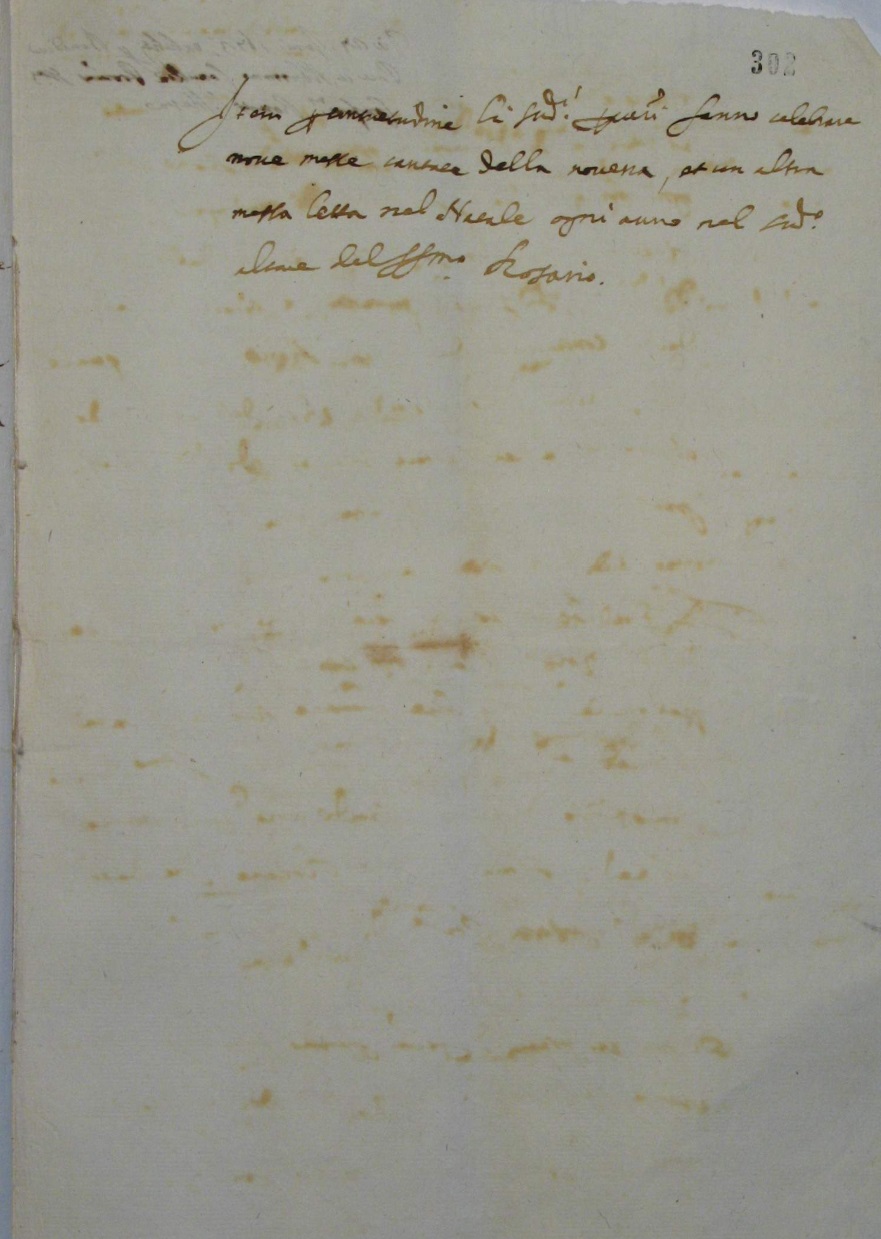 302
Item consuetudine li sud.i fanno celebrare
nove messe cantate della novena, et un altra
messa letta nel Natale ogni anno nel sud.o
altare del SSmo Rosario.